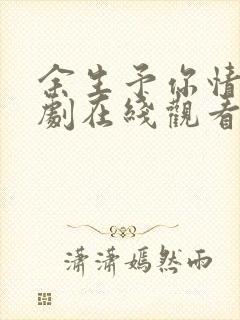 余生予你情
劇在綫觀看
瀟瀟嫣然雨